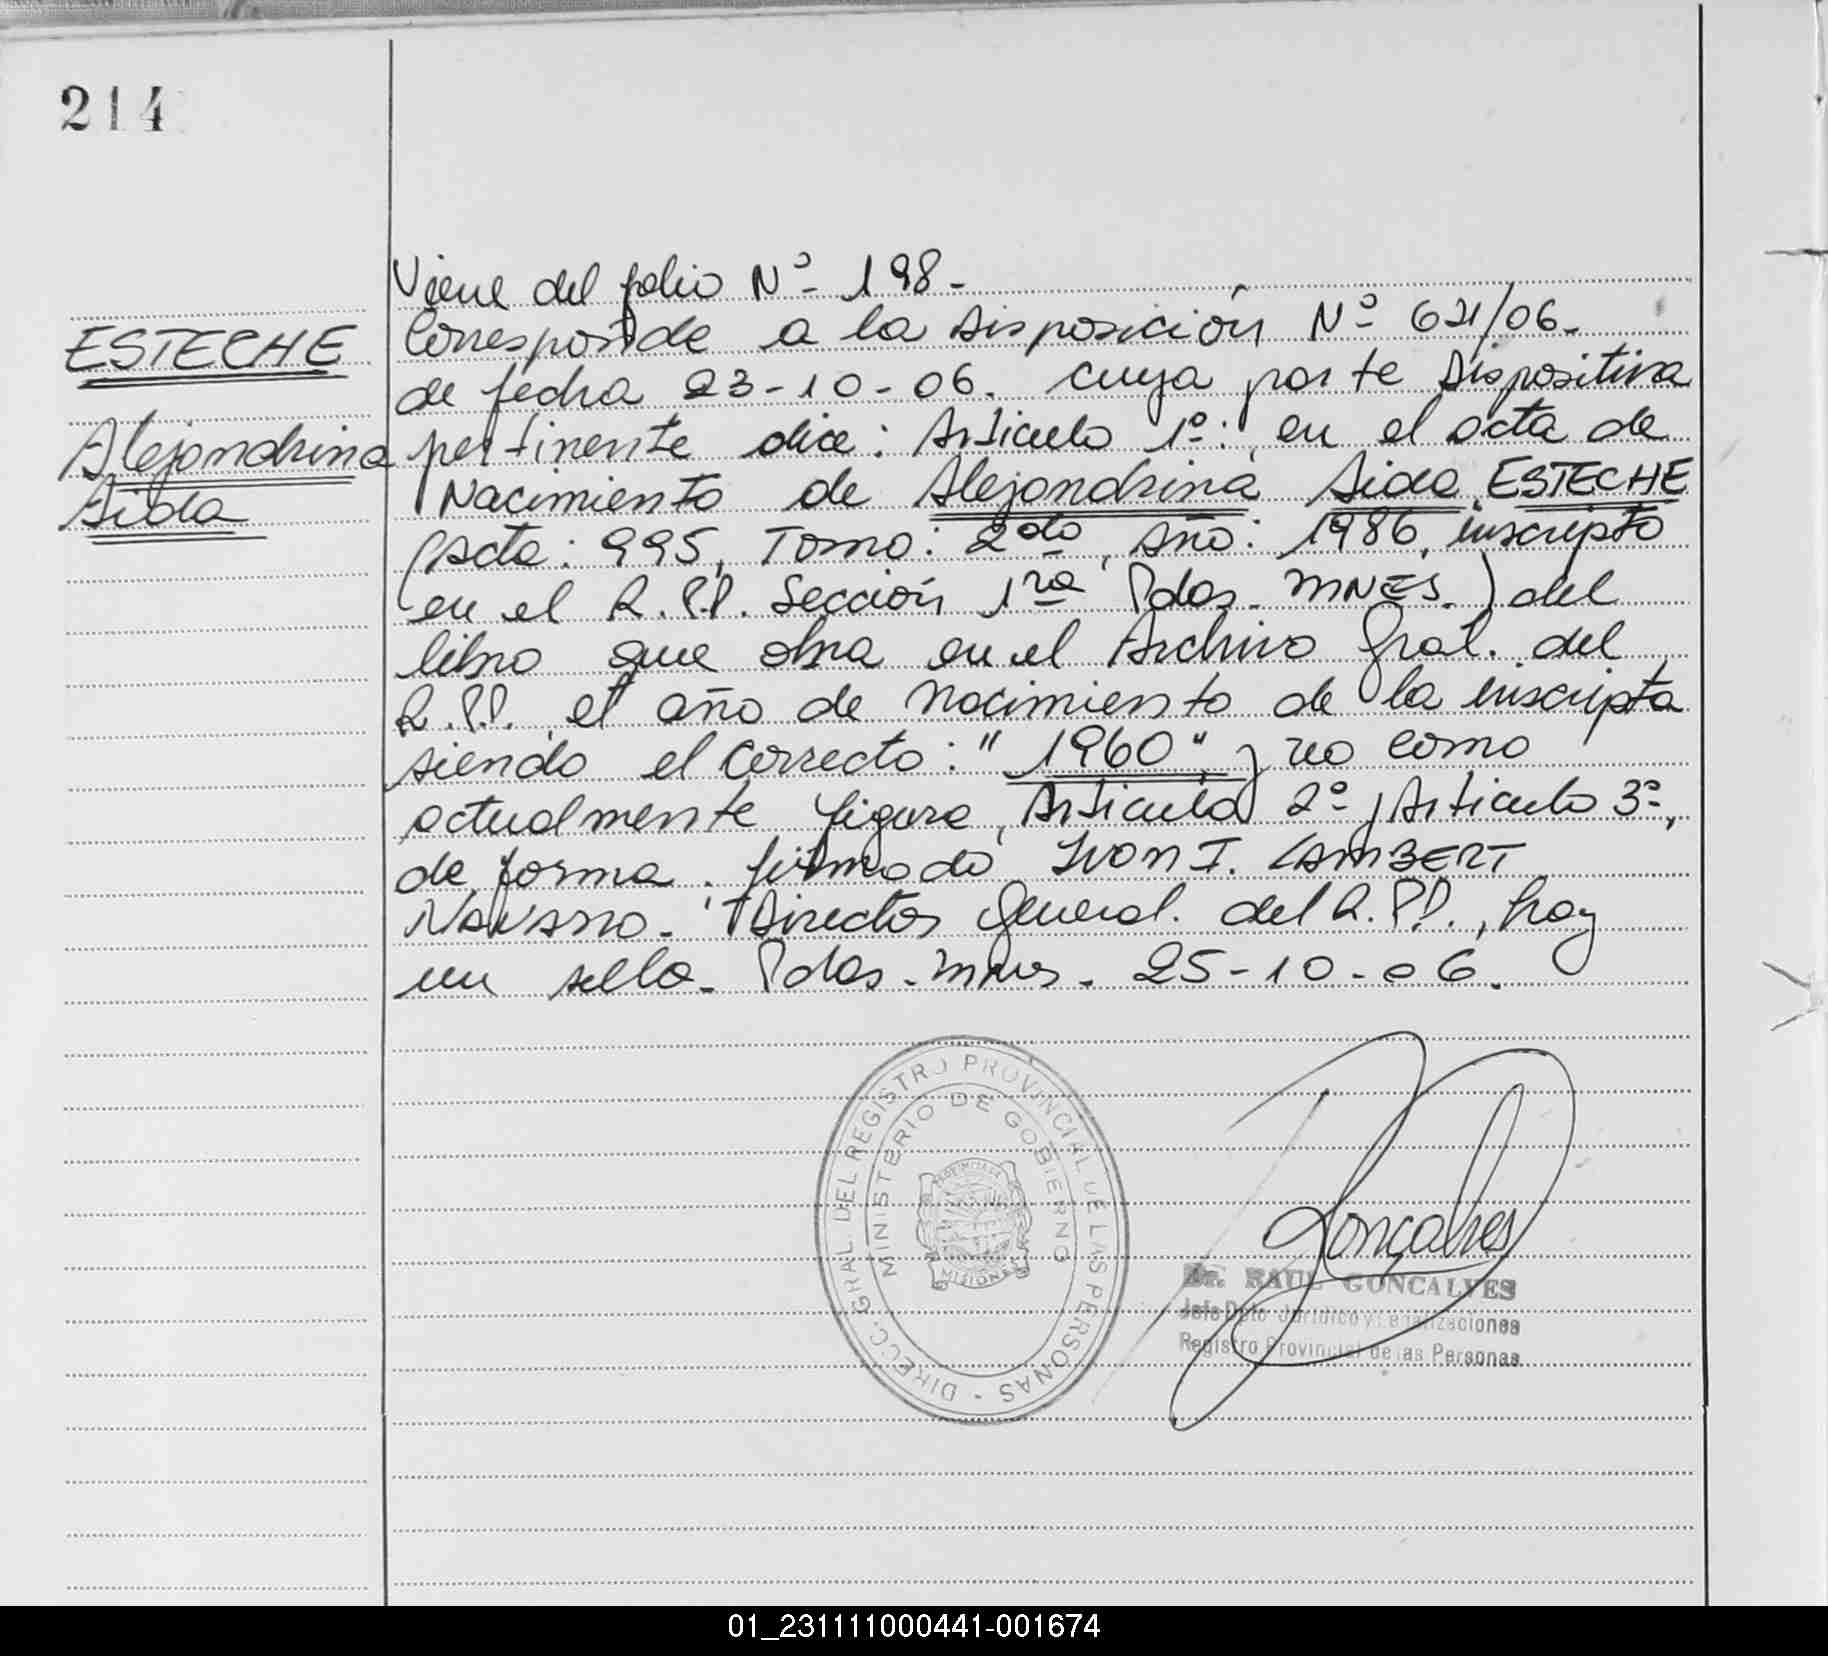 214
ESTECHE
Alejandrina
Aida
Viene del folio Nº 198.-
Corresponde a la Disposición Nº 621/06.
de fecha 23-10-06. cuya parte Dispositiva
pertinente dice: Artículo 1º: en el acta de
Nacimiento de Alejandrina Aida ESTECHE
(Acta: 995, Tomo: 2do, Año: 1986, inscripto
en el R.P.P. Sección 1ra Pdas. MNES.) del
libro que obra en el Archivo Gral. del
R.P.P. el año de nacimiento de la inscripta
siendo el correcto: "1960", y no como
actualmente figura, Artículo 2º, Artículo 3º,
de forma. firmado IVAN I. LAMBERT
NAVARRO. Director General. del R.P.P., hay
un sello. Pdas. Mnes. 25-10-06.
DIRECC. GRAL. DEL REGISTRO PROVINCIAL DE LAS PERSONAS -
MINISTERIO DE GOBIERNO
PROVINCIA DE
MISIONES
Gonçalves
Dr. RAUL GONCALVES
Jefe Dpto Jurídico y Legalizaciones
Registro Provincial de las Personas
01_231111000441-001674